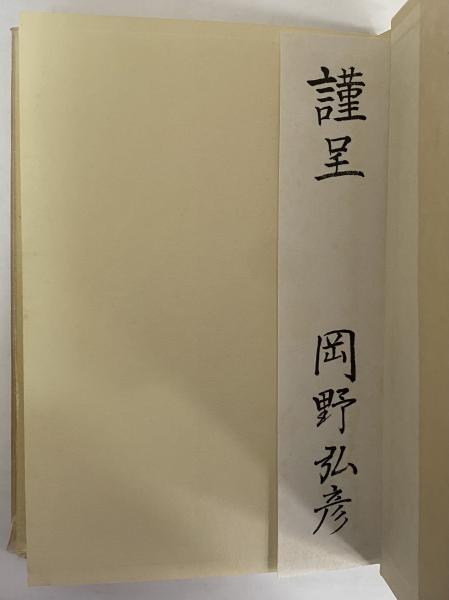 謹呈
岡野弘彦